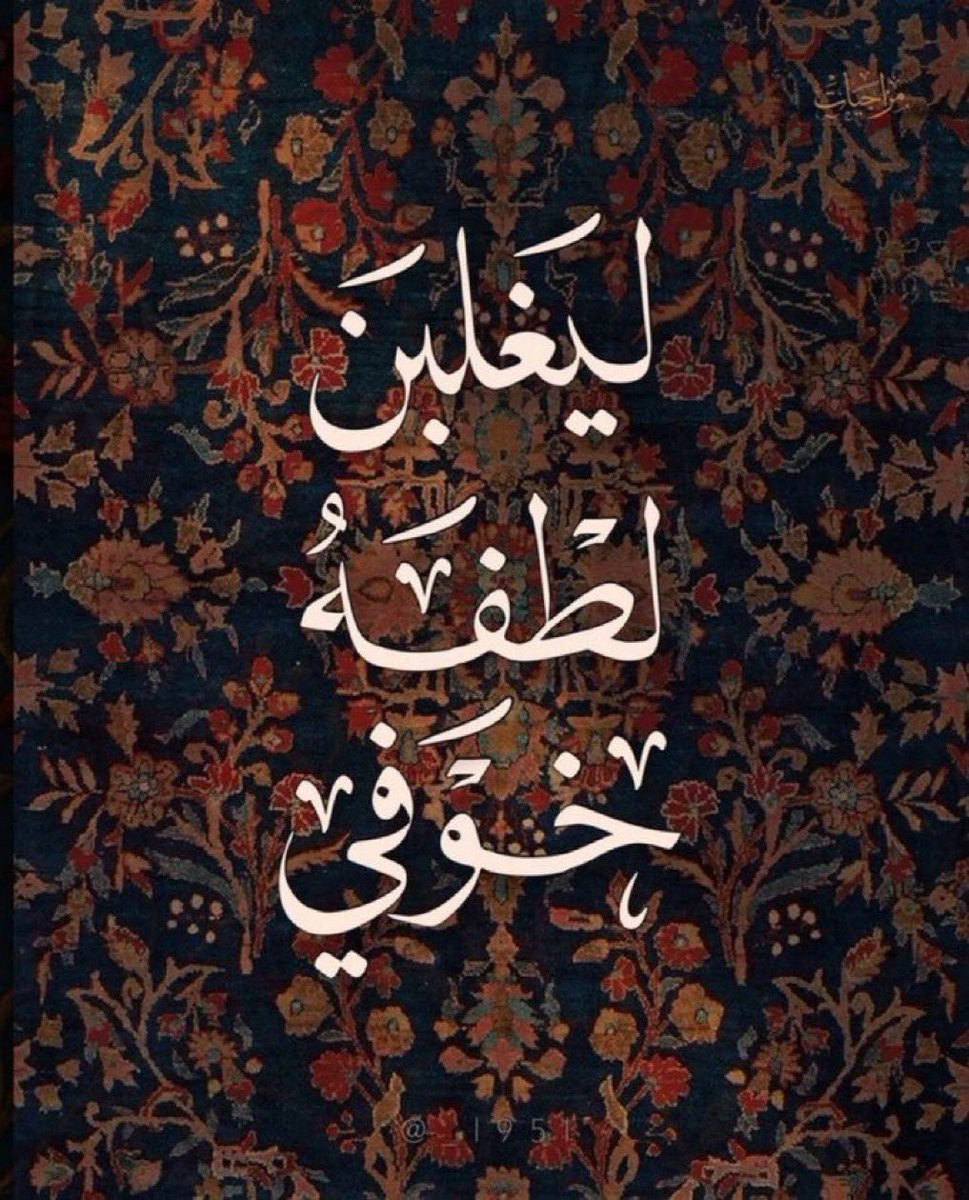 مزاجيات
ليَغلبنَ
لطْفَهُ
خوْفَي
@_1951